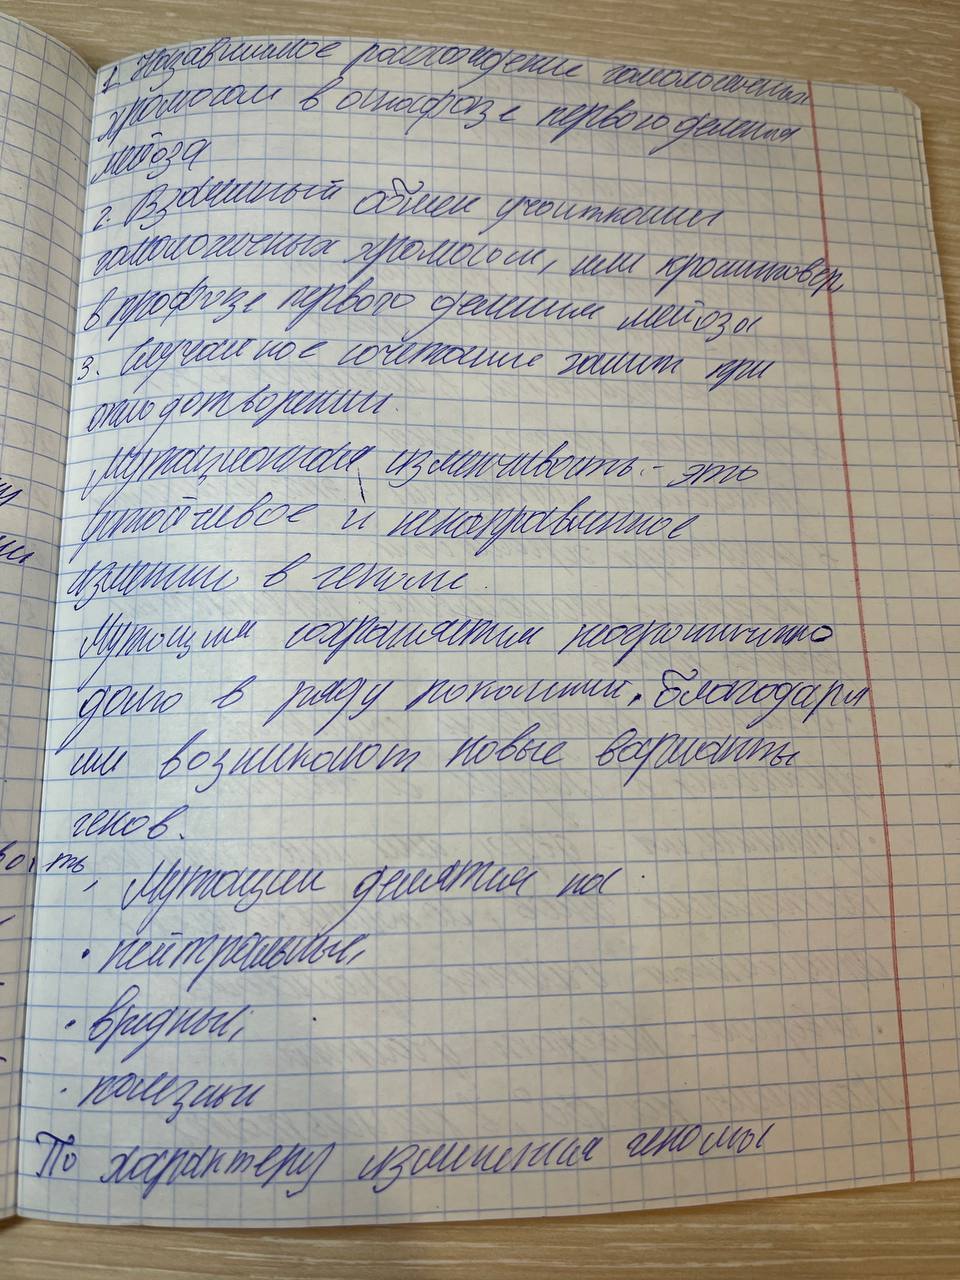 1. Независимое расхождение гомологичных
хромосом в анафазе первого деления
мейоза
2. Взаимный обмен участками
гомологичных хромосом, или кроссинговер,
в профазе первого деления мейоза
3. Случайное сочетание гамет при
оплодотворении.
Мутационная изменчивость - это
устойчивое и ненаправленное
изменение в геноме.
Мутации сохраняются неограниченно
долго в ряду поколений. Благодаря
им возникают новые варианты
генов.
Мутации делятся на
• нейтральные,
• вредные;
• полезные
По характеру изменения геномы